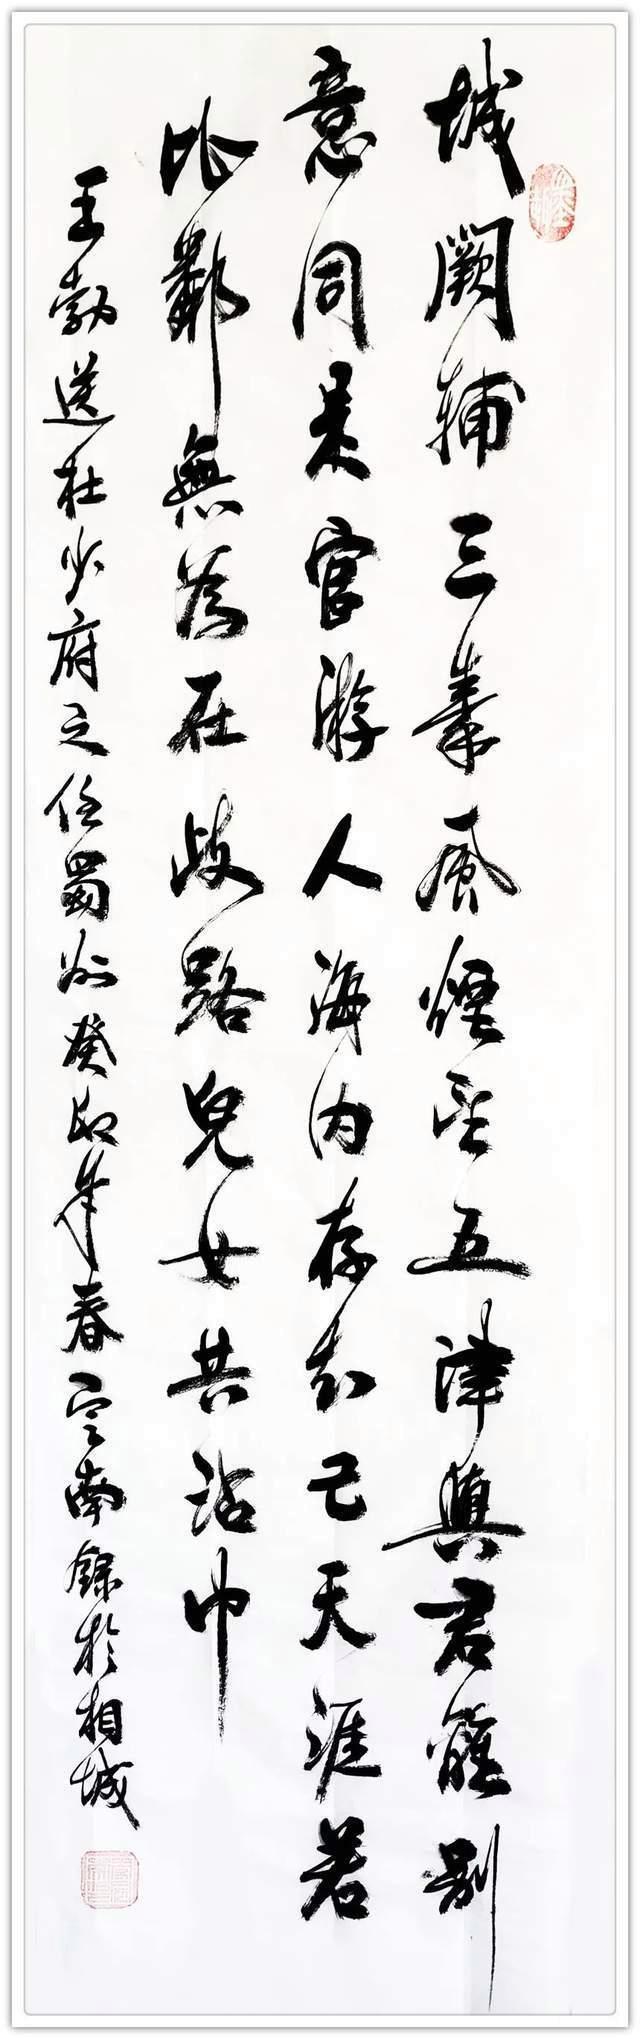 城闕輔三秦風煙望五津與君離別
意同是宦游人海内存知己天涯若
比鄰無為在歧路兒女共沾巾
王勃送杜少府之任蜀州癸卯年春宗南錄於相城